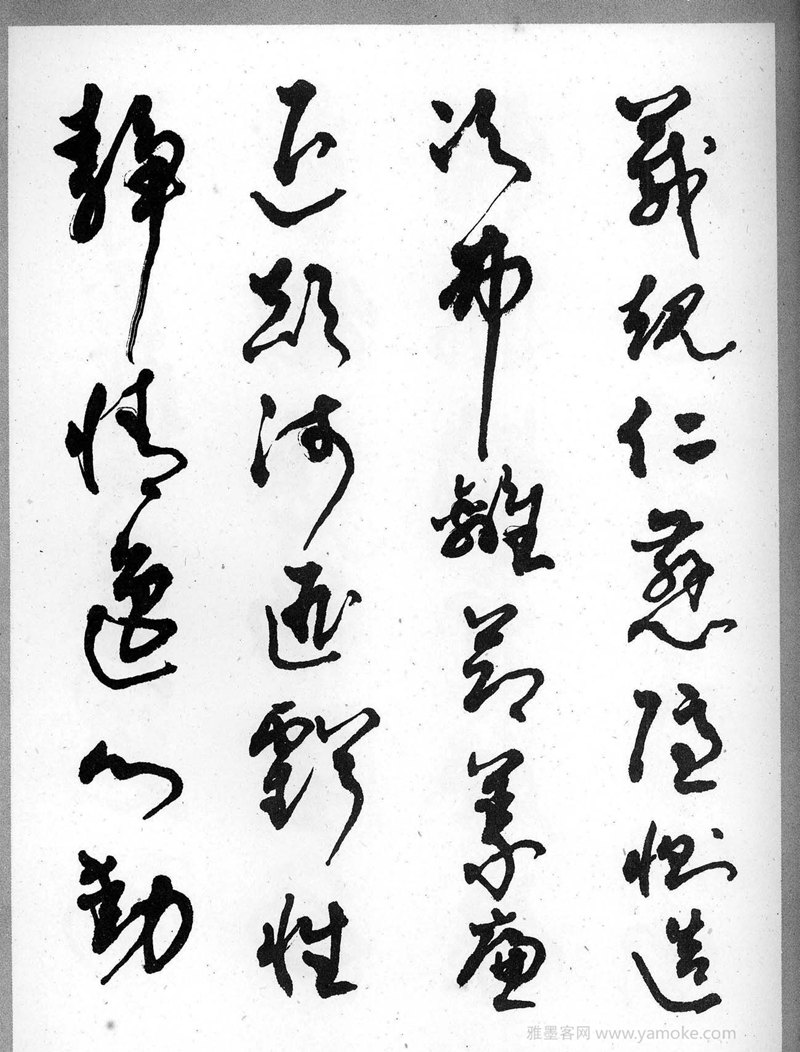 箴規仁慈隱惻造
次弗離節義廉
退顛沛匪虧性
靜情逸心動
雅墨客网 www.yamoke.com